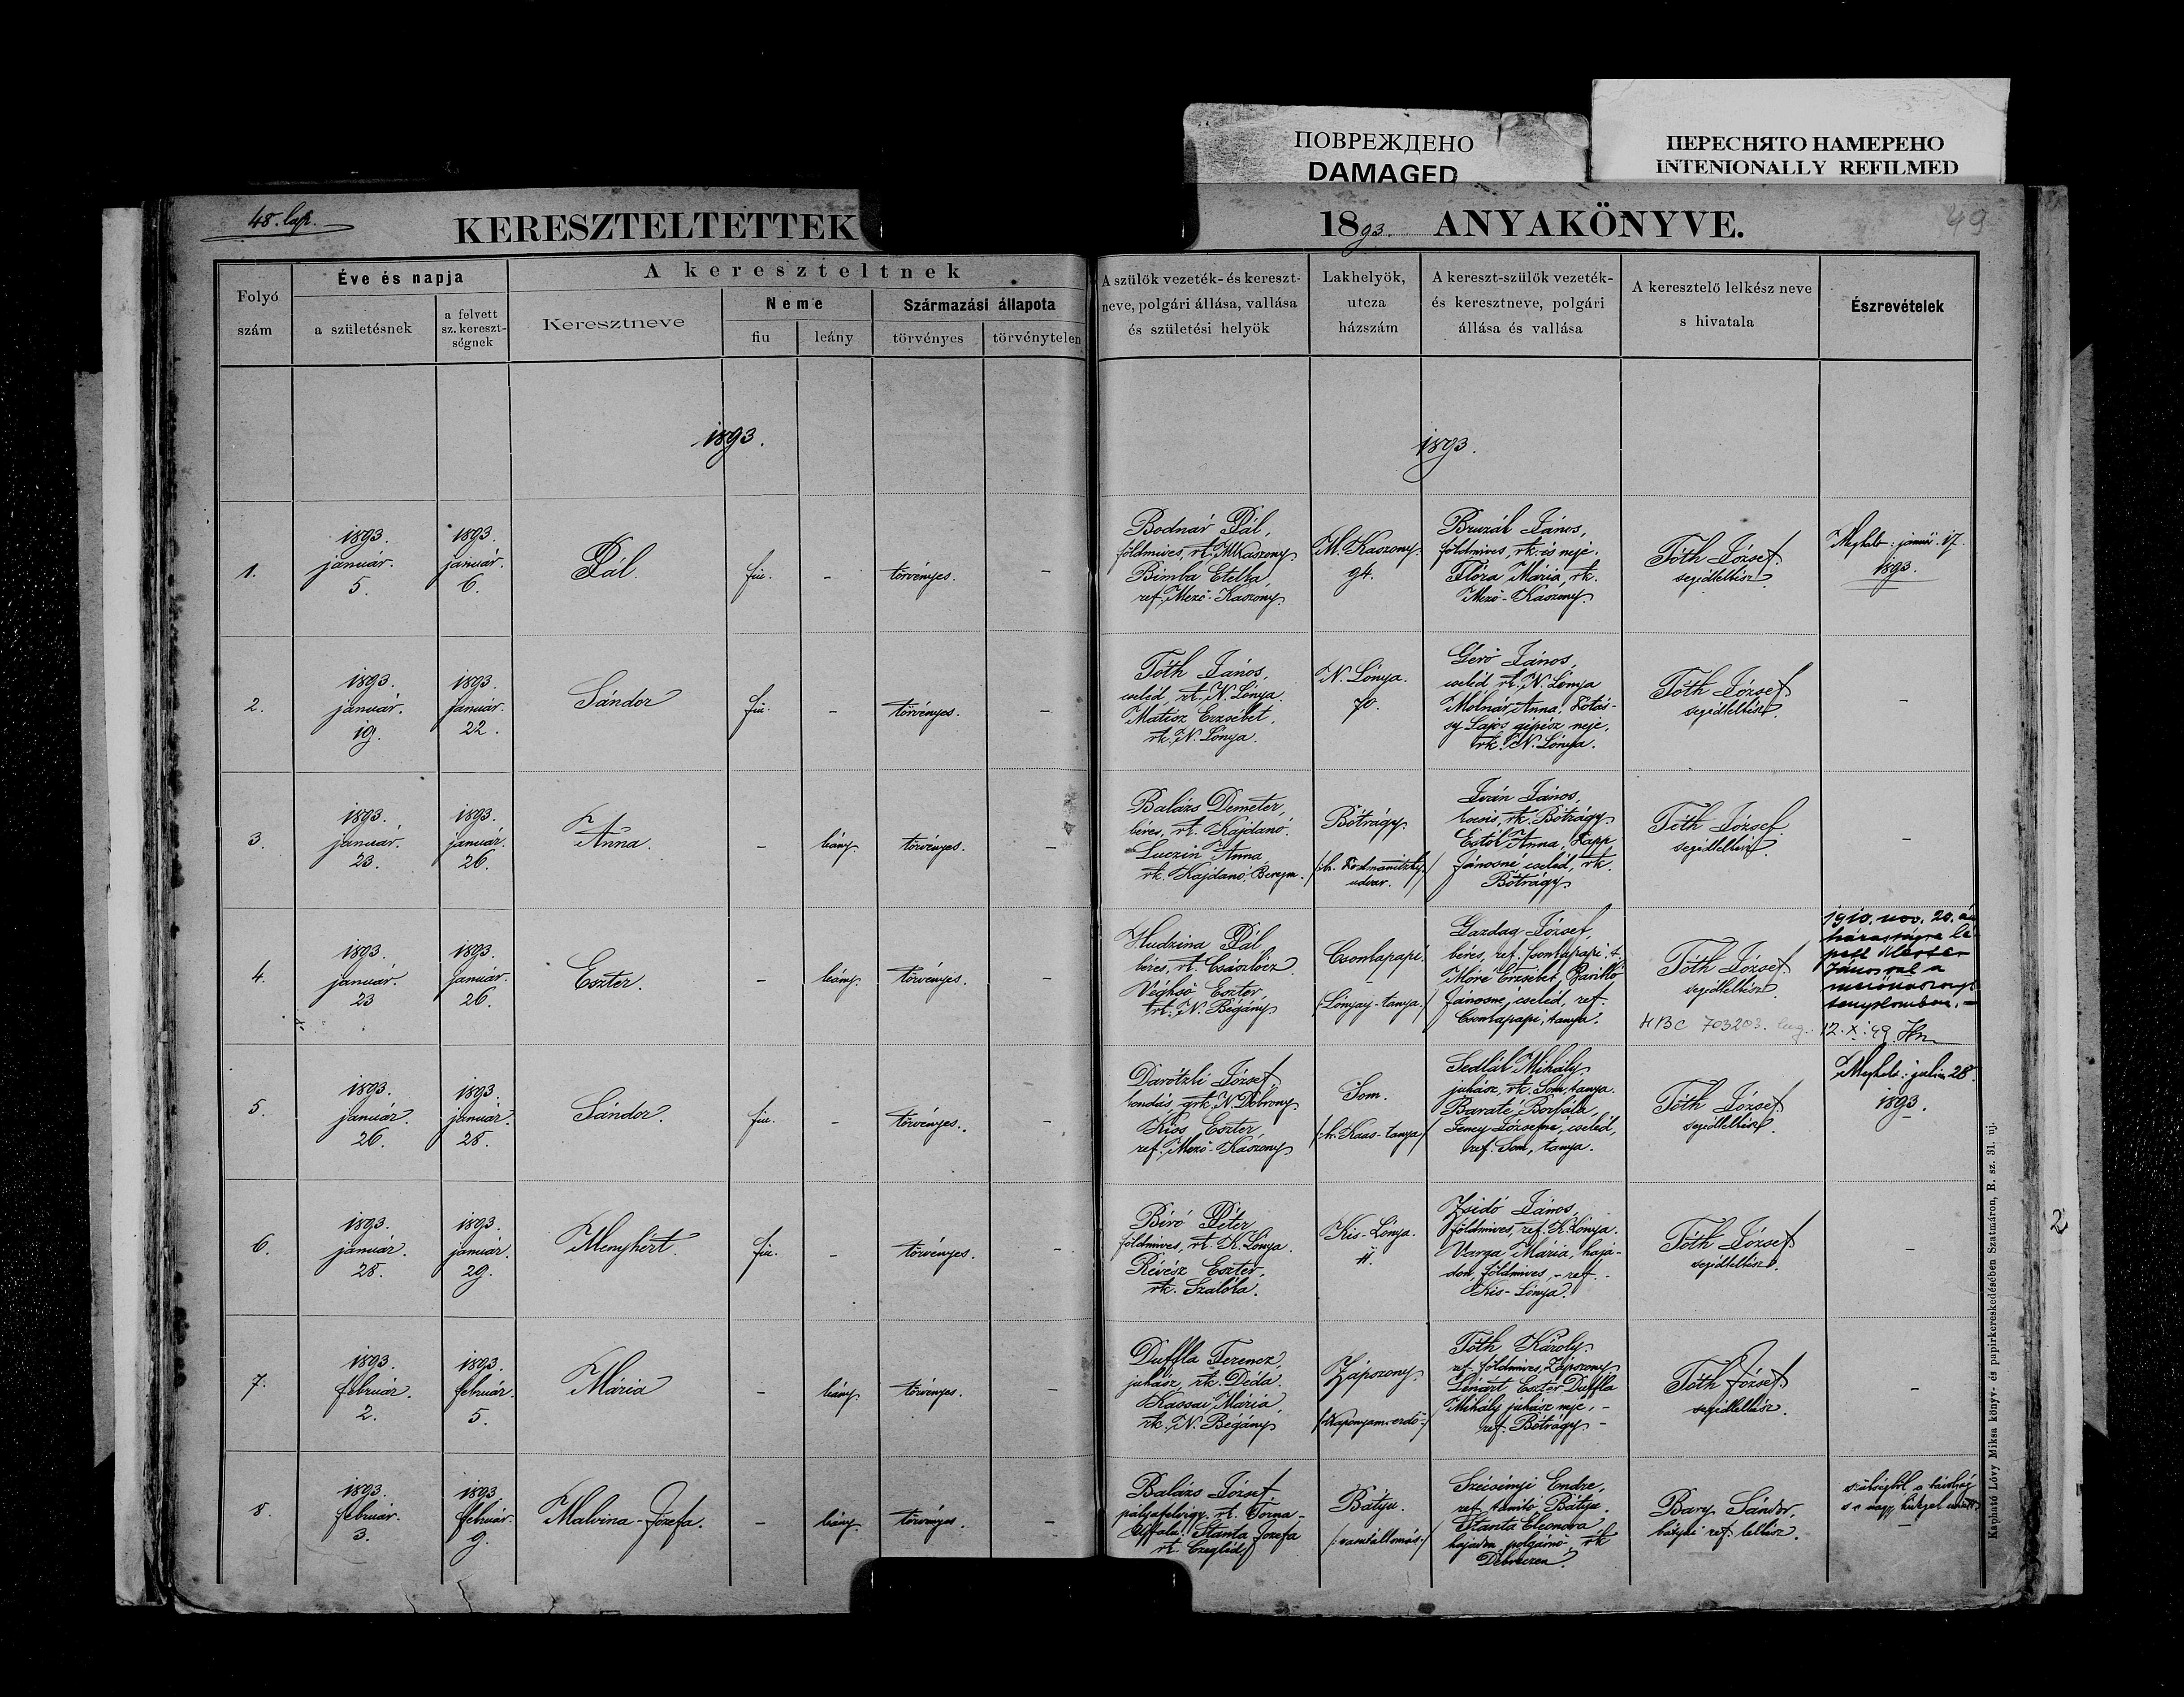 ПОВРЕЖДЕНО
DAMAGED
ПЕРЕСНЯТО НАМЕРЕНО
INTENIONALLY REFILMED
48. lap.
KERESZTELTETTEK
1893. ANYAKÖNYVE.
49
Folyó szám
Éve és napja
a születésnek
a felvett sz. kereszt-ségnek
A kereszteltnek
Keresztneve
Neme
fiu
leány
Származási állapota
törvényes
törvénytelen
A szülök vezeték- és kereszt-
neve, polgári állása, vallása
és születési helyök
Lakhelyök,
utcza
házszám
A kereszt-szülök vezeték-
és keresztneve, polgári
állása és vallása
A keresztelő lelkész neve
s hivatala
Észrevételek
1893.
1893.
1.
1893. január. 5.
1893. január. 6.
Pál.
fiu.
-
törvényes.
-
Bodnár Pál,
földmives, rk. M.Kaszony
Bimba Etelka,
ref. Mező-Kaszony
M. Kaszony.
94.
Bruzák János,
földmives, rk. és neje.
Flóra Mária, rk.
Mező-Kaszony
Tóth József
segédlelkész
Meghalt: január. 17.
1893.
2.
1893. január. 19.
1893. január. 22.
Sándor
fiu.
-
törvényes.
-
Tóth János,
cseléd, rk. N. Lónya.
Matisz Erzsébet,
rk. N. Lónya.
N. Lónya.
70.
Gerő János,
cseléd rk. N. Lónya
Molnár Anna,
sy Lajos gépész neje,
rk. N. Lónya.
Tóth József
segédlelkész.
-
3.
1893. január. 23.
1893. január. 26.
Anna.
-
leány
törvényes.
-
Balázs Demeter,
béres, rk. Kajdanó.
Luczin Anna,
rk. Kajdanó, Beregm.
Bótrágy.
udvar.
Iván János,
kocsis, rk. Bótrágy
Anna, Papp
Jánosné, cseléd, rk.
Bótrágy
Tóth József.
segédlelkész
-
4.
1893. január. 23
1893. január. 26.
Eszter.
-
leány.
törvényes.
-
Hudzina Pál,
béres, rk. Császlócz.
Véghső Eszter,
rk. N. Bégány
Csonkapapi.
/Lónyay-tanya./
Gazdag József,
béres, ref. Csonkapapi. t.
Móré Erzsébet,
Jánosné, cseléd, ref.
Csonkapapi, tanya.
Tóth József
segédlelkész
HBC 703203.
1910. nov. 20. án
házasságra lé-
pett
Jánossal a
mezőkaszonyi
templomban. -
12. X. 49.
5.
1893. január. 26.
1893. január. 28.
Sándor.
fiu.
-
törvényes.
-
Darótzki József,
kondás, grk. N. Dobrony
Kiss Eszter,
ref. Mező-Kaszony
Som.
/:br. Kaas-tanya/
Sedlák Mihály,
juhász, rk. Som, tanya.
Baraté Borbála,
Józsefné, cseléd,
ref. Som, tanya.
Tóth József
segédlelkész.
Meghalt: julius 28.
1893.
6.
1893. január. 28.
1893. január. 29.
Menyhért.
fiu.
-
törvényes.
-
Biró Péter
földmives, rk. K. Lónya.
Révész Eszter,
rk. Szalóka.
Kis-Lónya.
11.
Zsidó János,
földmives, ref. K. Lónya.
Varga Mária, haja-
don, földmives, - ref. -
Kis-Lónya.
Tóth József
segédlelkész.
-
7.
1893. február. 2.
1893. február. 5.
Mária
-
leány
törvényes.
-
Duffla Ferencz,
juhász, rk. Déda.
Kassai Mária,
rk. N. Bégány
Zápszony.
Tóth Károly
ref. földmives, Zápszony
Lénárt Eszter Duffla
Mihály juhász neje, -
ref. Bótrágy -
Tóth József
segédlelkész.
-
8.
1893. február. 3.
1893 február. 9.
Malvina-Jozefa.
-
leány.
törvényes.
-
Balázs József
pályafelvigy. rk. Torna-
Ujfalu. Stanta Jozefa
rk. Czegléd
Bátyu.
/:vasutállomás:/
Szécsényi Endre,
ref. tanitó Bátyu.
Stanta Eleonora
hajadon, polgárnő, rk
Debreczen.
Bary Sándor,
bátyui ref. lelkész.
szükségből a távolság
s a nagy hideg miatt.
Kapható Lővy Miksa könyv- és papirkereskedésében Szatmáron, R. sz. 31. uj.
2